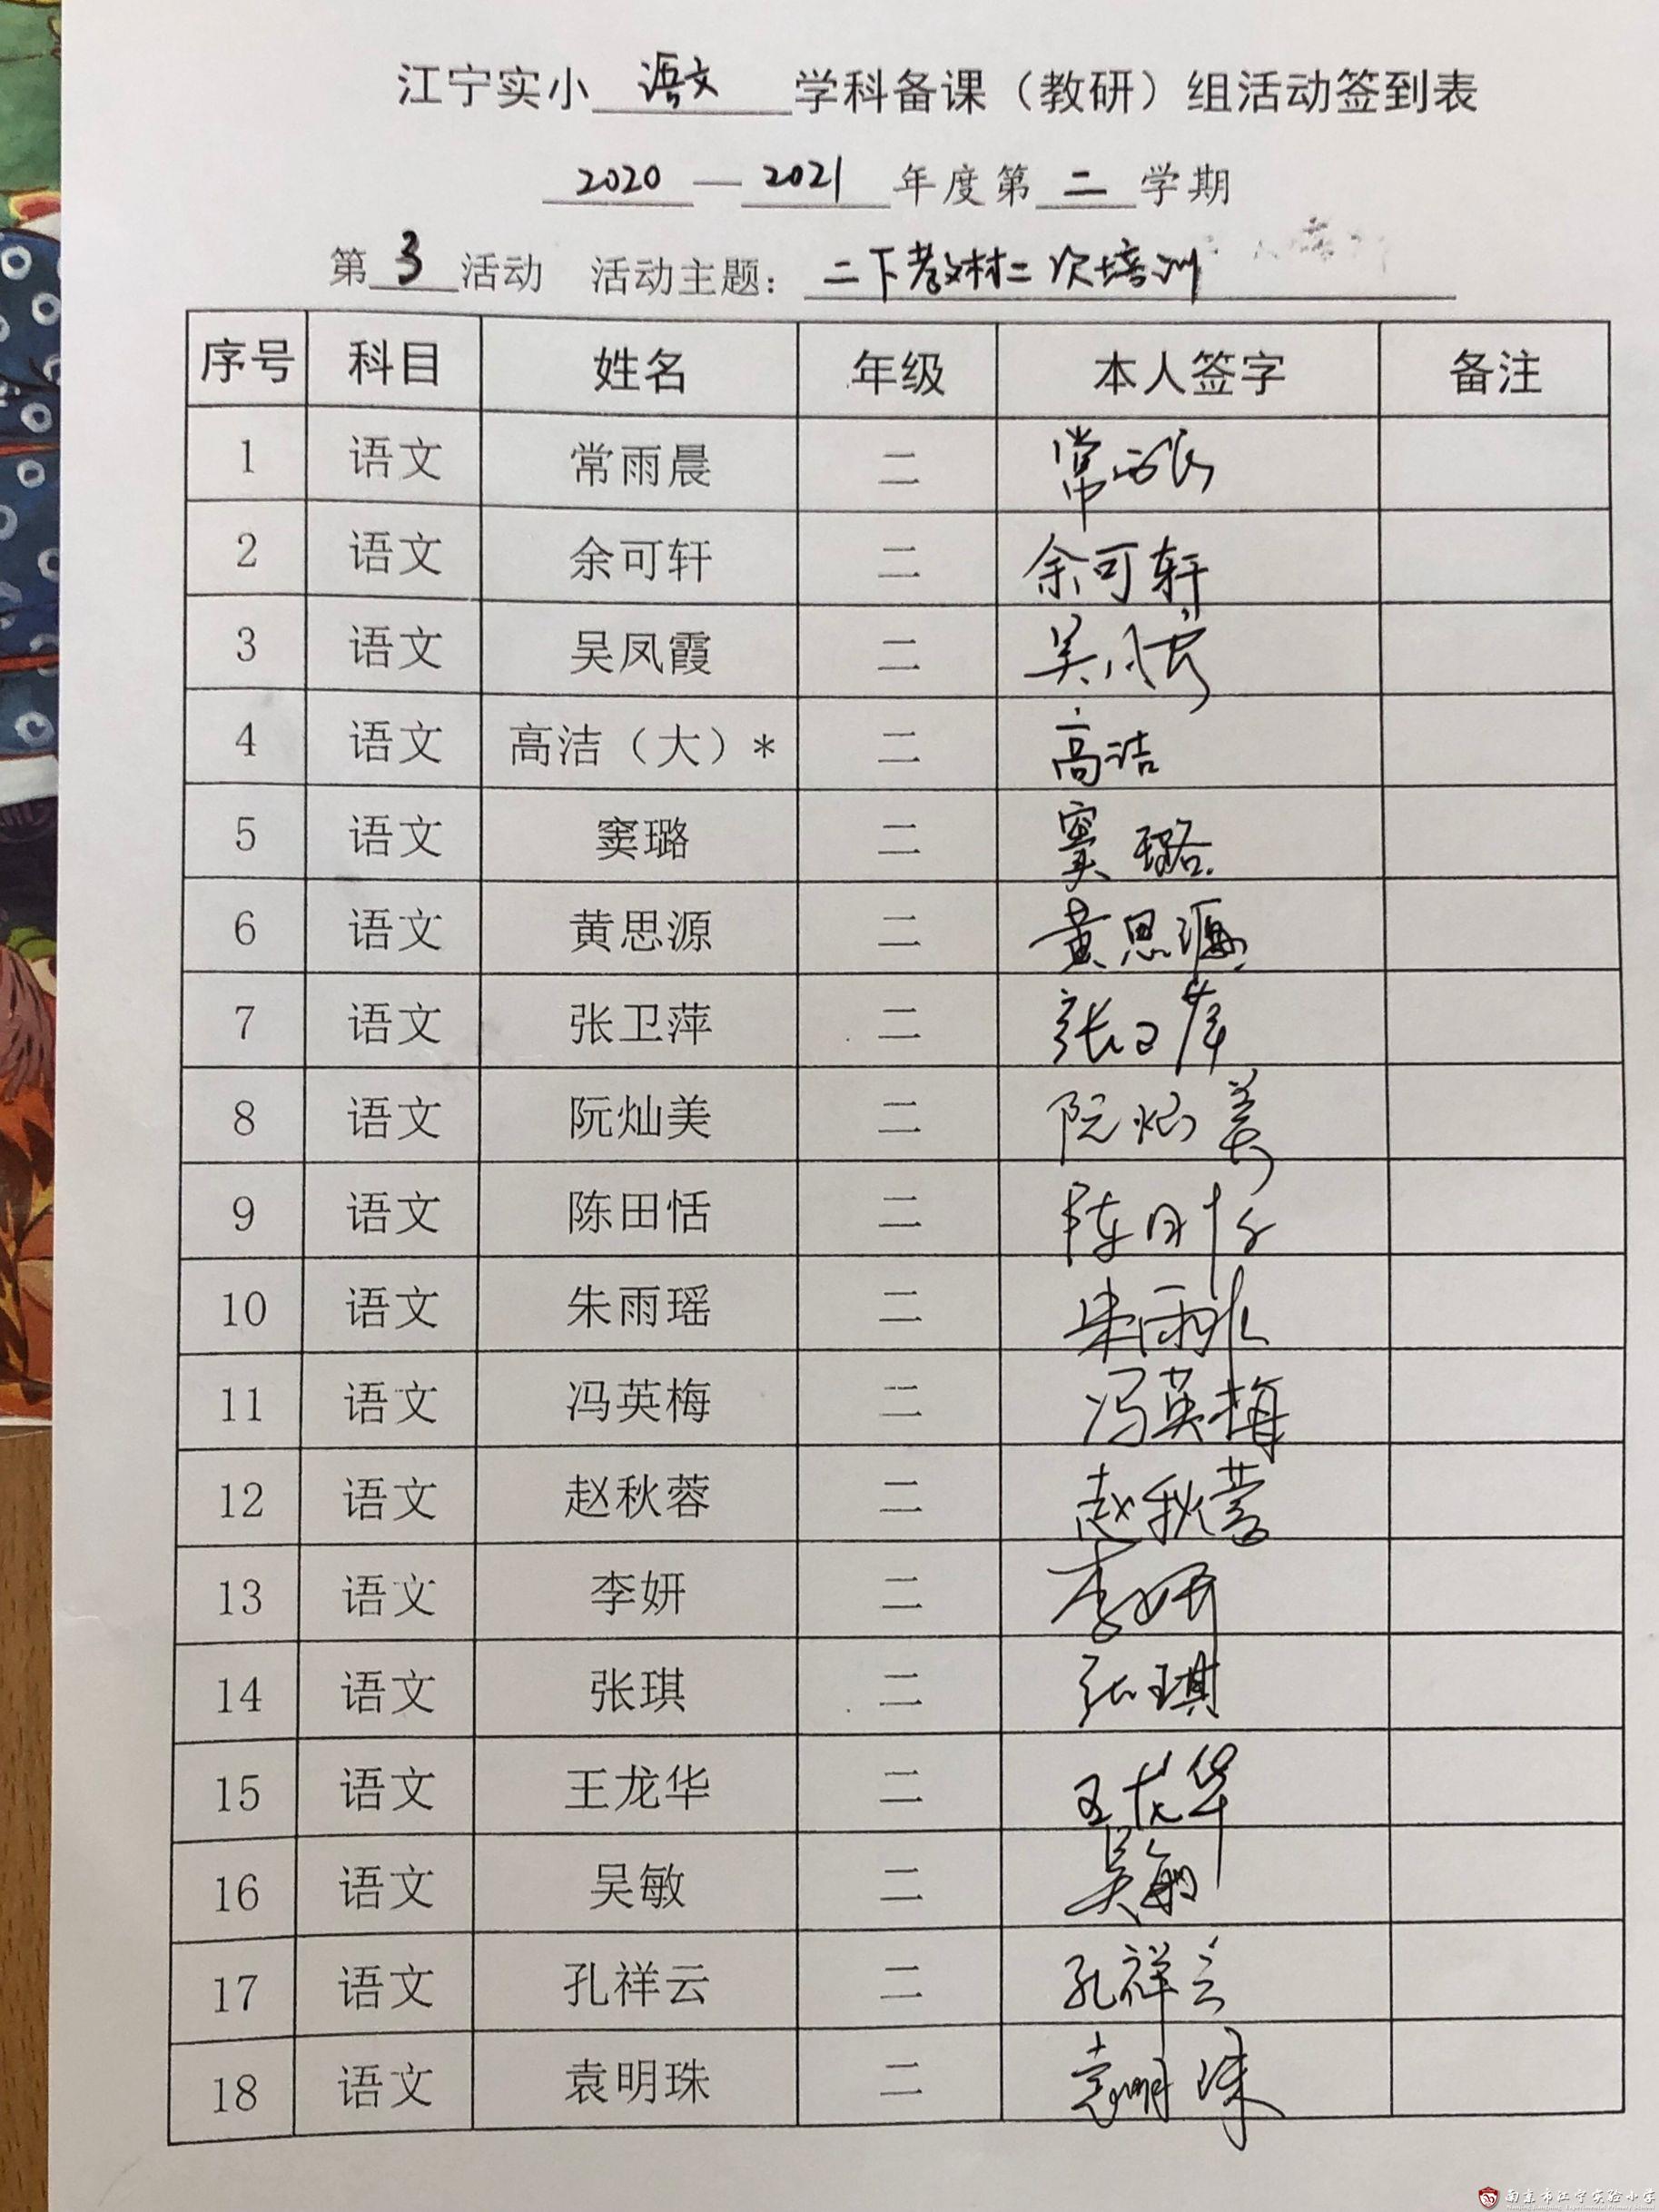 江宁实小 语文 学科备课（教研）组活动签到表
2020 — 2021 年度第 二 学期
第 3 活动 活动主题： 二下教材二次培训
序号 科目 姓名 年级 本人签字 备注
1 语文 常雨晨 二 常雨晨
2 语文 余可轩 二 余可轩
3 语文 吴凤霞 二 吴凤霞
4 语文 高洁（大）* 二 高洁
5 语文 窦璐 二 窦璐
6 语文 黄思源 二 黄思源
7 语文 张卫萍 二 张卫萍
8 语文 阮灿美 二 阮灿美
9 语文 陈田恬 二 陈田恬
10 语文 朱雨瑶 二 朱雨瑶
11 语文 冯英梅 二 冯英梅
12 语文 赵秋蓉 二 赵秋蓉
13 语文 李妍 二 李妍
14 语文 张琪 二 张琪
15 语文 王龙华 二 王龙华
16 语文 吴敏 二 吴敏
17 语文 孔祥云 二 孔祥云
18 语文 袁明珠 二 袁明珠
南京市江宁实验小学